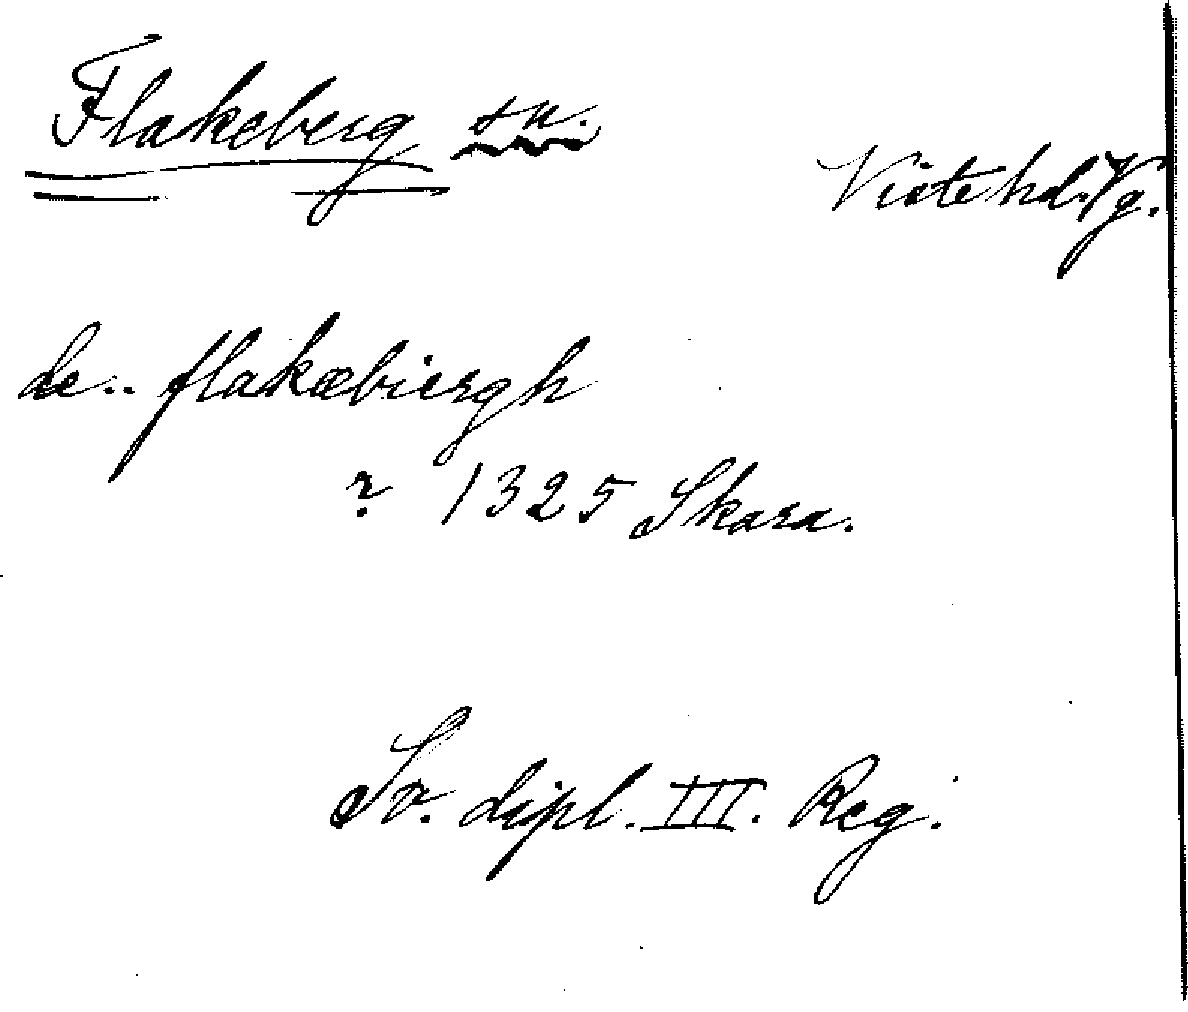 Flakeberg sn.
Viste hd. Vg.
de.. flakæbiergh
? 1325 Skara.
Sv. dipl. III. Reg.